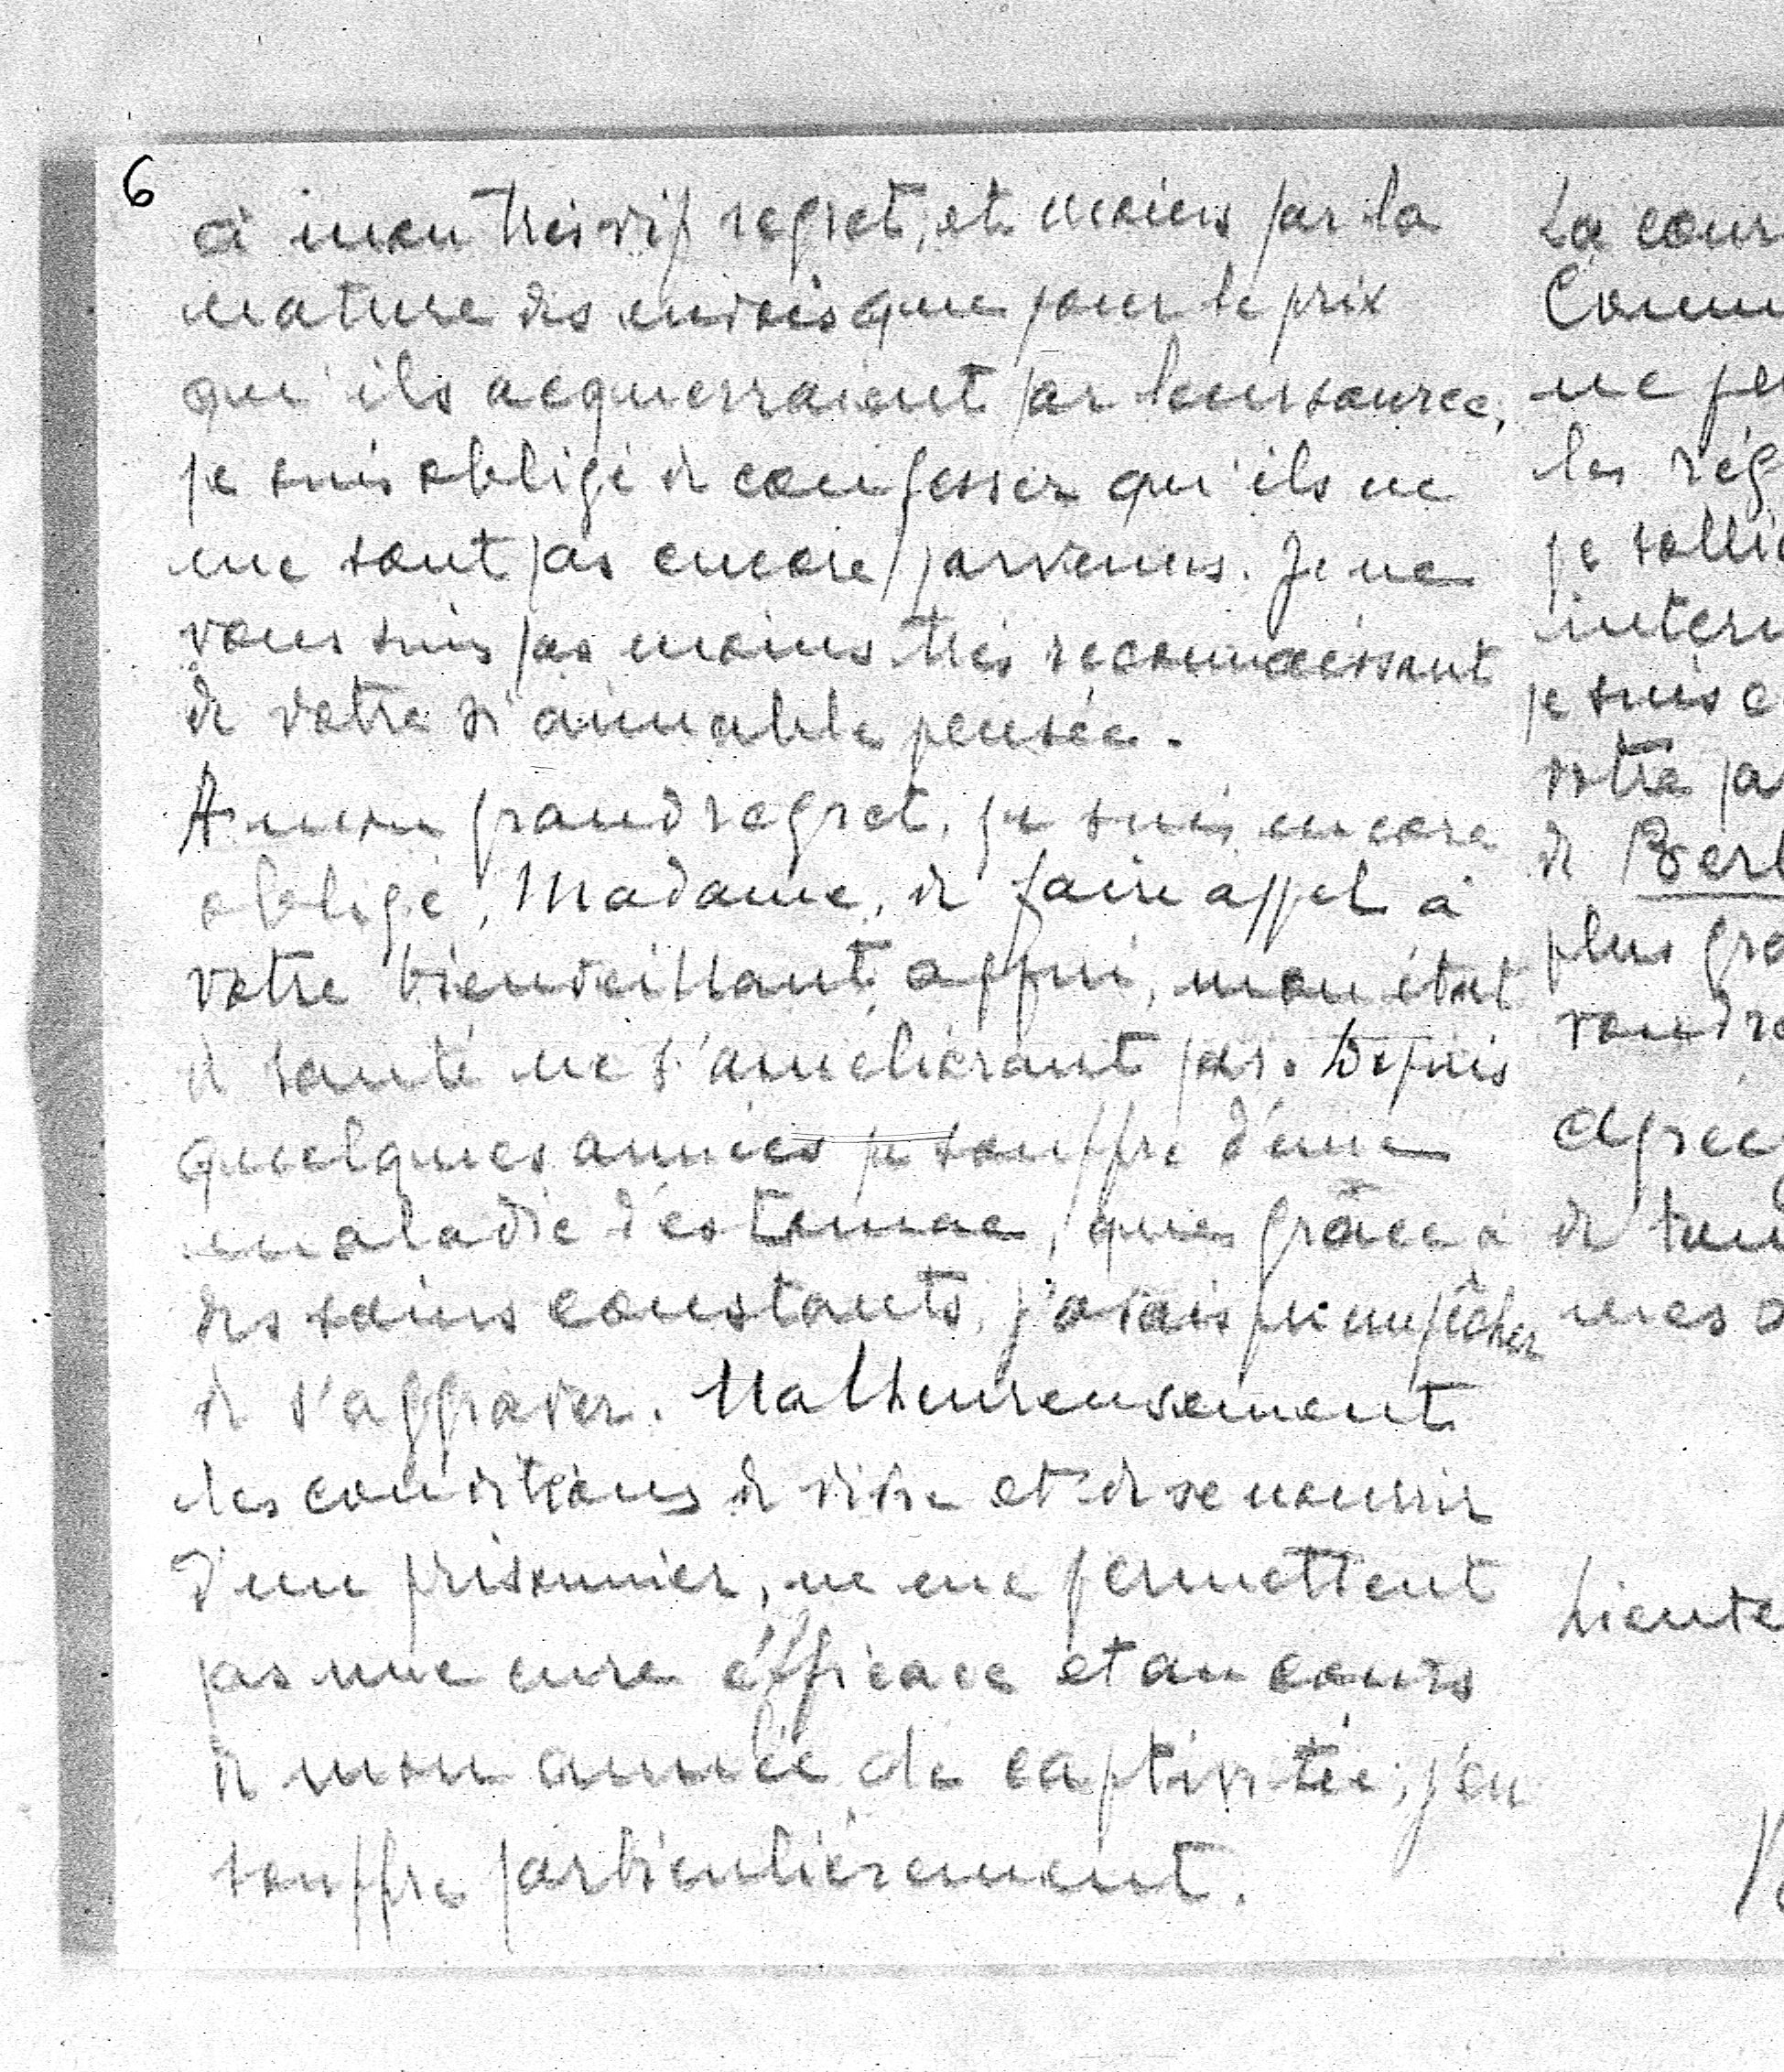 6
à mon très vif regret, et moins par la
nature des envois que pour le prix
qu'ils acquerraient par leur source,
je suis obligé de confesser qu'ils ne
me sont pas encore parvenus. Je ne
vous suis pas moins très reconnaissant
de votre si aimable pensée.
A mon grand regret, je suis encore
obligé, Madame, de faire appel à
votre bienveillant appui, mon état
de santé ne s'améliorant pas. Depuis
quelques années je souffre d'une
maladie d'estomac, que grâce à
des soins constants, j'avais pu empêcher
de s'aggraver. Malheureusement
les conditions de vivre et de se nourrir
d'un prisonnier, ne me permettent
pas une cure éfficace et au cours
de mon année de captivitée, j'en
souffre particulièrement.
La cour
Comm
ne pe
les rég
je solli
intern
je suis
votre pa
de Berl
plus gra
voudr
Agrée
de tou
mes
Lieute